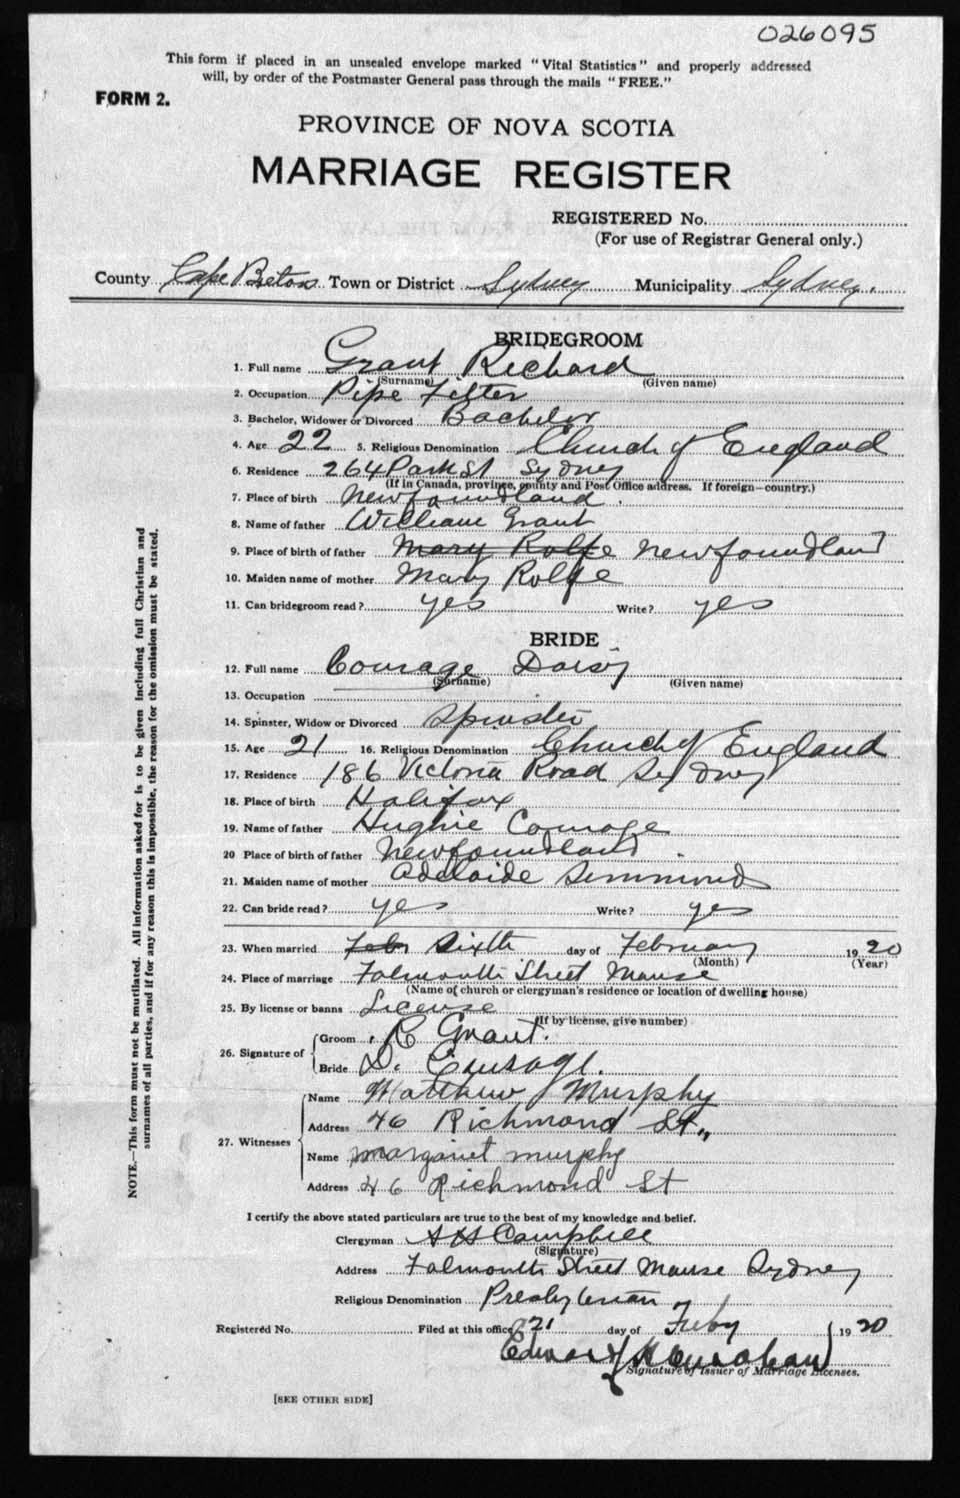 026095
This form if placed in an unsealed envelope marked "Vital Statistics" and properly addressed
will, by order of the Postmaster General pass through the mails "FREE."
FORM 2.
PROVINCE OF NOVA SCOTIA
MARRIAGE REGISTER
REGISTERED No.
(For use of Registrar General only.)
County Cape Breton Town or District Sydney Municipality Sydney.
BRIDEGROOM
1. Full name Grant Richard
(Surname) (Given name)
2. Occupation Pipe Fitter
3. Bachelor, Widower or Divorced Bachelor
4. Age 22 5. Religious Denomination Church of England
6. Residence 264 Park St Sydney
(If in Canada, province, county and Post Office address. If foreign—country.)
7. Place of birth Newfoundland.
8. Name of father William Grant
9. Place of birth of father Mary Rolfe Newfoundland
10. Maiden name of mother Mary Rolfe
11. Can bridegroom read? yes Write? yes
BRIDE
12. Full name Courage Daisy
(Surname) (Given name)
13. Occupation
14. Spinster, Widow or Divorced Spinster
15. Age 21 16. Religious Denomination Church of England
17. Residence 186 Victoria Road Sydney
18. Place of birth Halifax
19. Name of father Hughie Courage
20 Place of birth of father Newfoundland.
21. Maiden name of mother Adelaide Simmonds
22. Can bride read? yes Write? yes
23. When married Feb Sixth day of February 1920
(Month) (Year)
24. Place of marriage Falmouth Street Manse
(Name of church or clergyman's residence or location of dwelling house)
25. By license or banns License
(If by license, give number)
26. Signature of
Groom R Grant.
Bride D. Courage.
27. Witnesses
Name Matthew J Murphy
Address 46 Richmond St.,
Name margaret murphy
Address 46 Richmond St
I certify the above stated particulars are true to the best of my knowledge and belief.
Clergyman A H Campbell
(Signature)
Address Falmouth Street Manse Sydney
Religious Denomination Presbyterian
Registered No. Filed at this office 21 day of Feby 1920
Edward
Signature of Issuer of Marriage Licenses.
[SEE OTHER SIDE]
NOTE.—This form must not be mutilated. All information asked for is to be given including full Christian and
surnames of all parties, and if for any reason this is impossible, the reason for the omission must be stated.